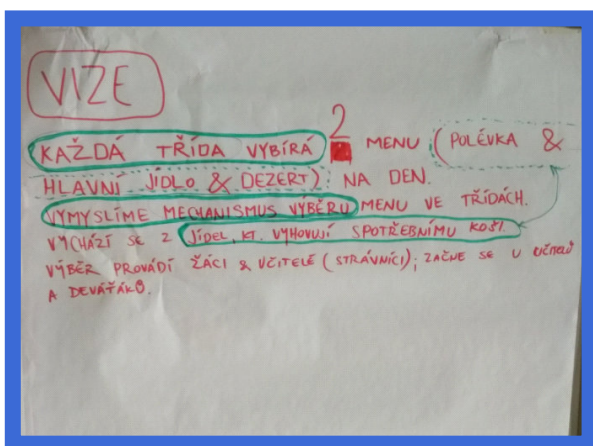 VIZE
KAŽDÁ TŘÍDA VYBÍRÁ 2 MENU (POLÉVKA &
HLAVNÍ JÍDLO & DEZERT) NA DEN.
VYMYSLÍME MECHANISMUS VÝBĚRU MENU VE TŘÍDÁCH.
VYCHÁZÍ SE Z JÍDEL, KT. VYHOVUJÍ SPOTŘEBNÍMU KOŠI.
VÝBĚR PROVÁDÍ ŽÁCI & UČITELÉ (STRÁVNÍCI); ZAČNE SE U UČITELŮ
A DEVÁŤÁKŮ.